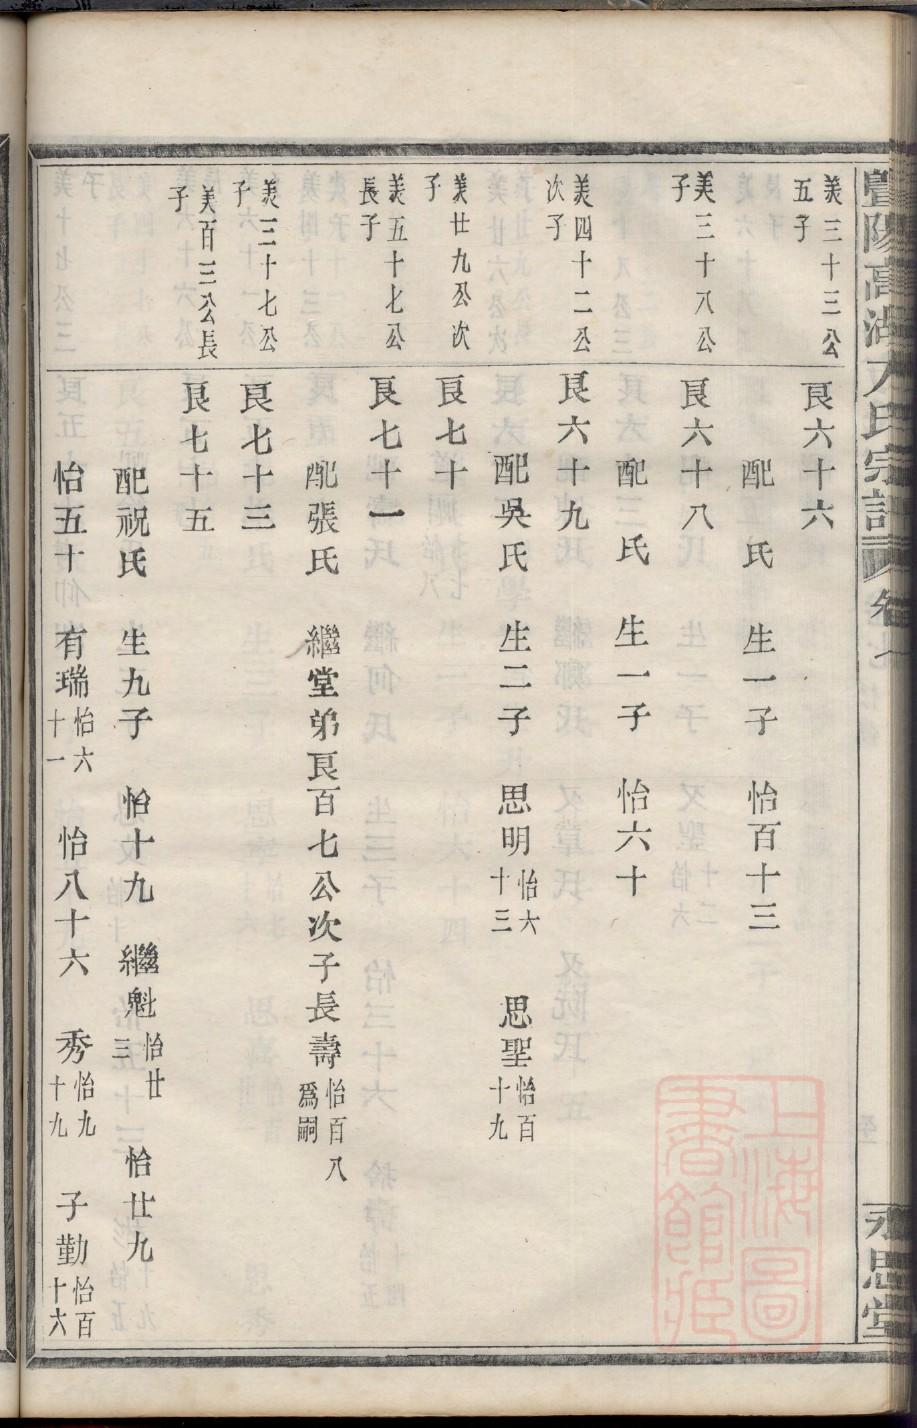 暨陽高湖方氏宗譜 卷一
永思堂
美三十三公五子
良六十六
配 氏 生一子 怡百十三
美三十八公子
良六十八
配 氏 生一子 怡六十
美四十二公次子
良六十九
配吳氏 生二子 思明怡六十三 思聖怡百十九
美廿九公次子
良七十
美五十七公長子
良七十一
配張氏 繼堂弟良百七公次子長壽怡百八爲嗣
美三十七公子
良七十三
美百三公長子
良七十五
配祝氏 生九子 怡十九 繼魁怡廿三 怡廿九
怡五十 有瑞怡六十一 怡八十六 秀怡九十九 子勤怡百十六
上海圖書館藏